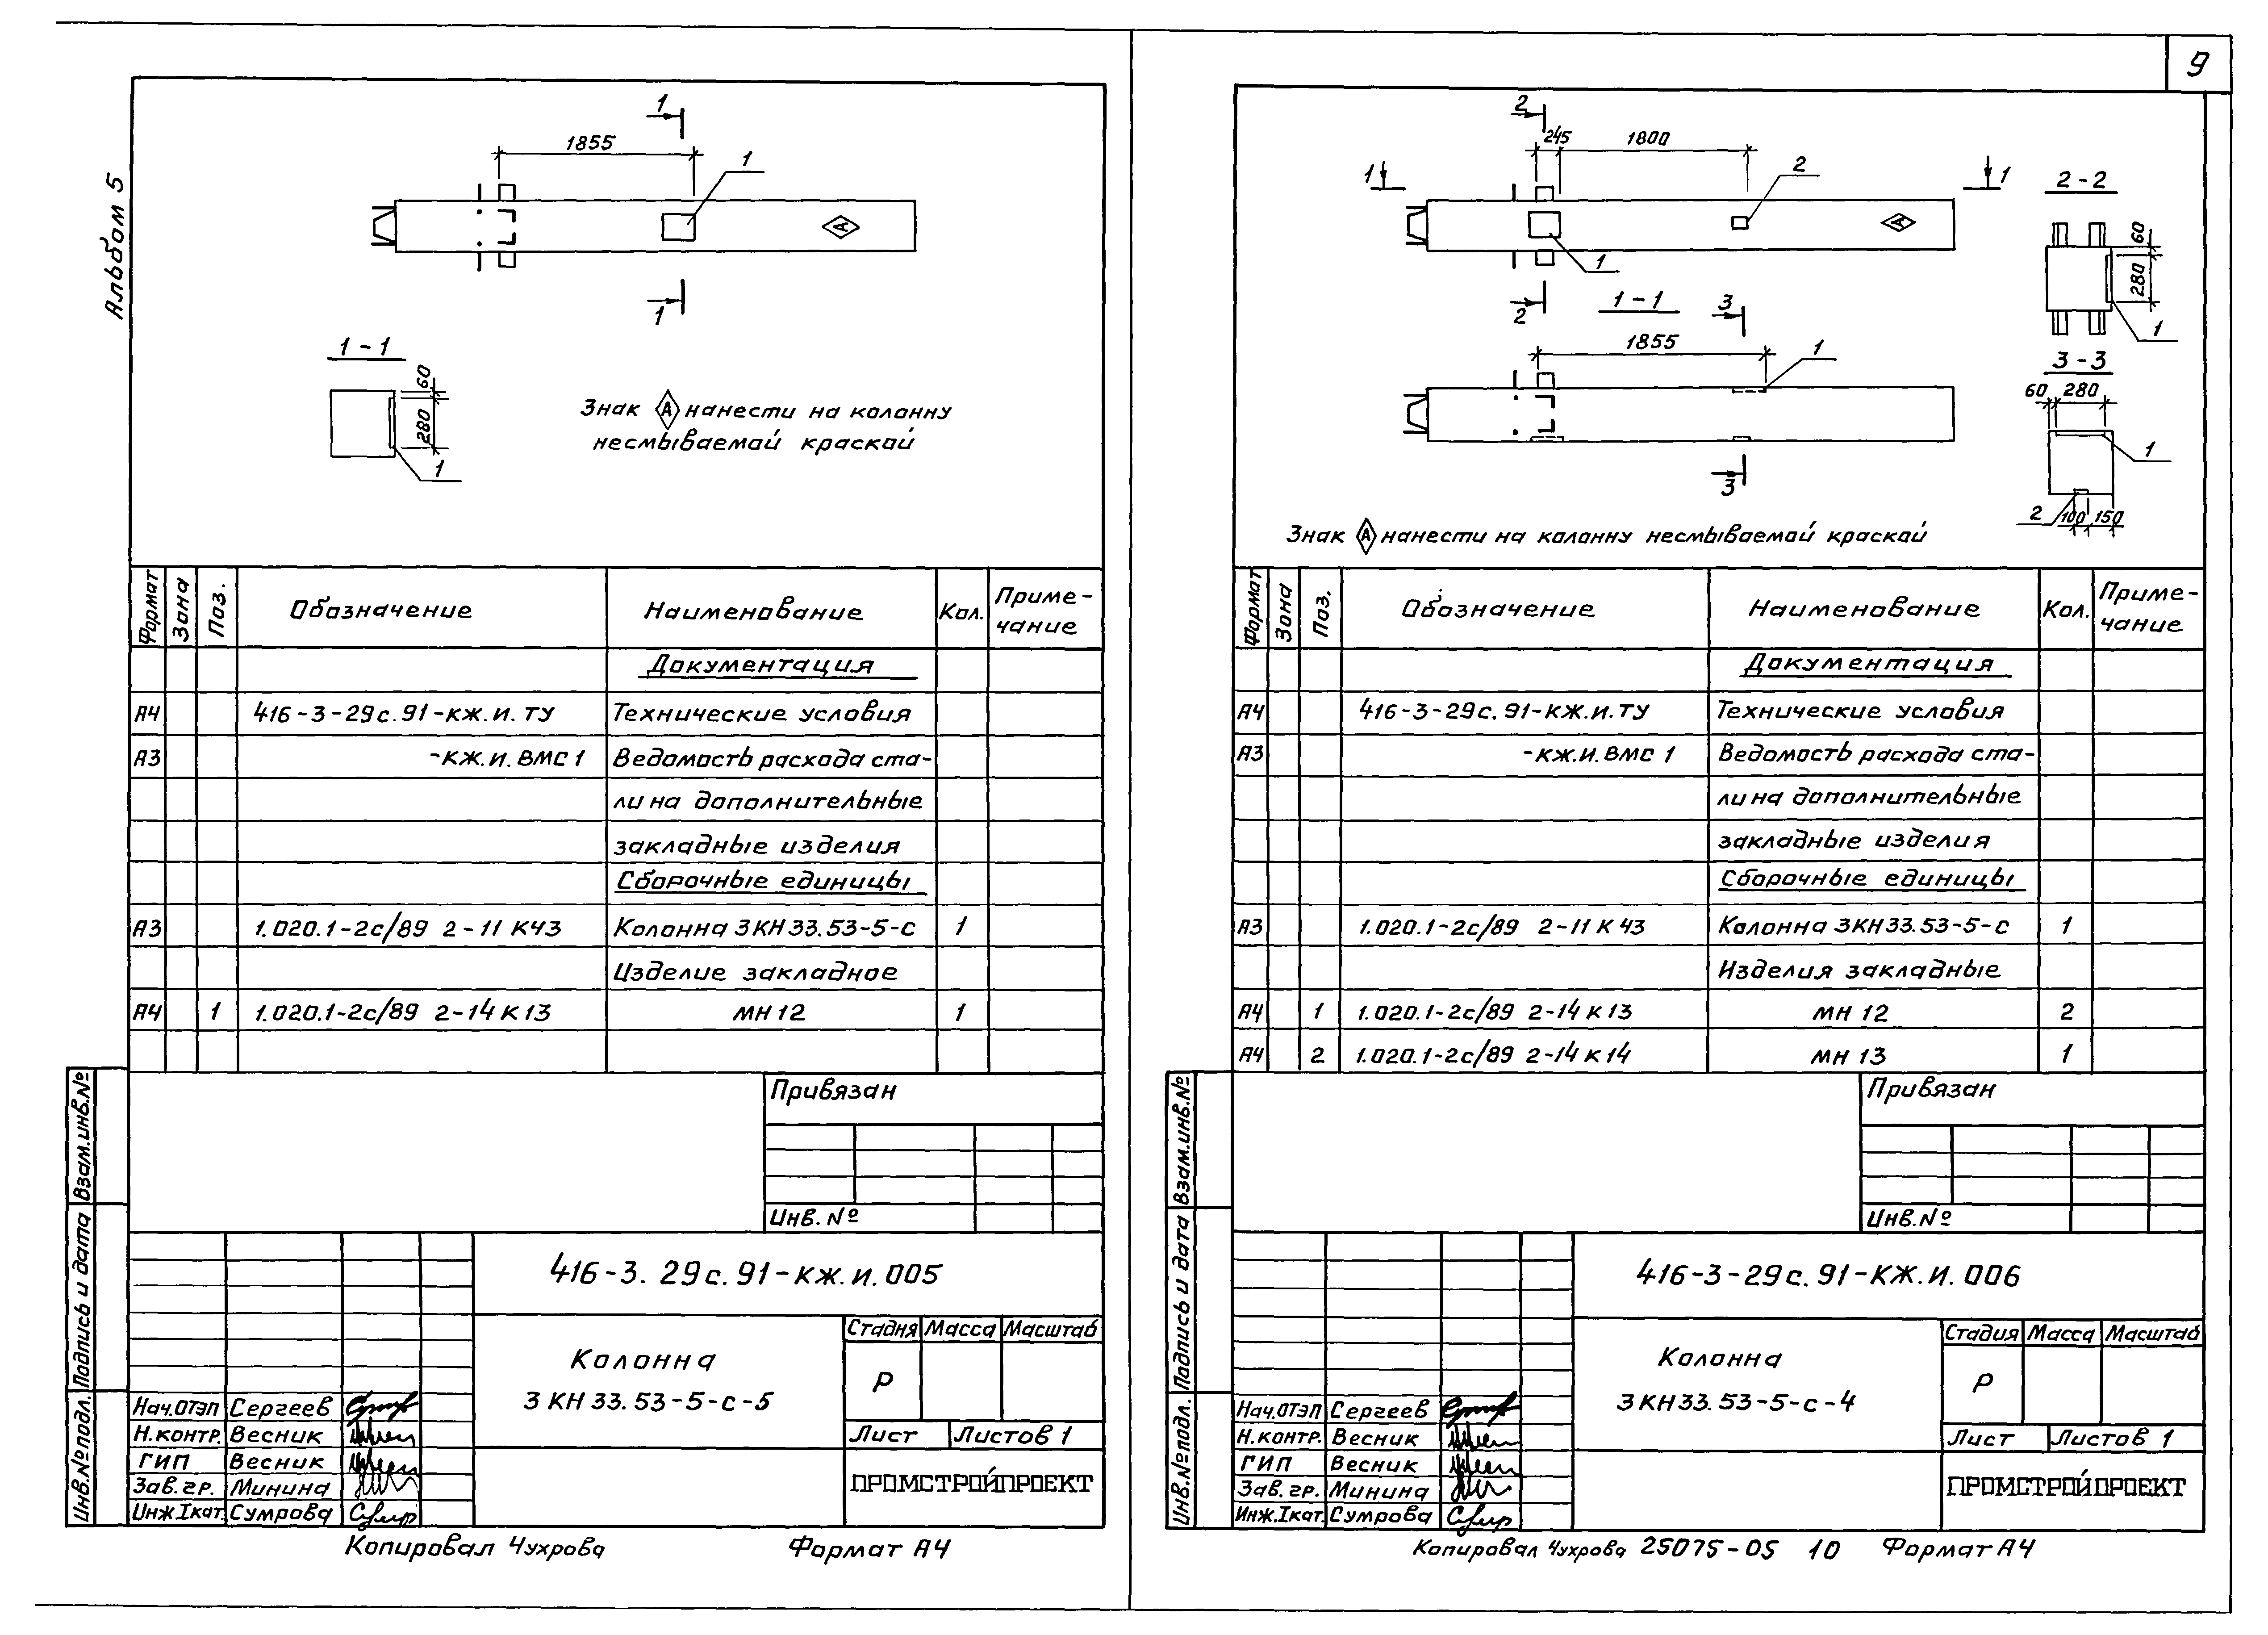 9
Альбом 5
1
1855
1
А
1
1-1
60
280
1
Знак А нанести на колонну
несмываемой краской
Формат Зона Поз. Обозначение Наименование Кол. Приме-
чание
Документация
А4 416-3-29с.91-КЖ.И.ТУ Технические условия
А3 -КЖ.И.ВМС 1 Ведомость расхода ста-
ли на дополнительные
закладные изделия
Сборочные единицы
А3 1.020.1-2с/89 2-11 К43 Колонна 3КН33.53-5-с 1
Изделие закладное
А4 1 1.020.1-2с/89 2-14 К13 МН 12 1
Привязан
Инв.№
Взам.инв.№
Подпись и дата
Инв.№ подл.
416-3.29с.91-КЖ.И.005
Колонна
3КН33.53-5-с-5
Стадия Масса Масштаб
Р
Лист Листов 1
ПРОМСТРОЙПРОЕКТ
Нач.ОТЭП Сергеев
Н.контр. Весник
ГИП Весник
Зав.гр. Минина
Инж.Iкат. Сумрова
Копировал Чухрова Формат А4
2
245 1800
1 2 1
А
1
2
1-1
3
1855
1
3
2-2
60
280
1
3-3
60 280
1
2 100 150
Знак А нанести на колонну несмываемой краской
Формат Зона Поз. Обозначение Наименование Кол. Приме-
чание
Документация
А4 416-3-29с.91-КЖ.И.ТУ Технические условия
А3 -КЖ.И.ВМС 1 Ведомость расхода ста-
ли на дополнительные
закладные изделия
Сборочные единицы
А3 1.020.1-2с/89 2-11 К43 Колонна 3КН33.53-5-с 1
Изделия закладные
А4 1 1.020.1-2с/89 2-14 К13 МН 12 2
А4 2 1.020.1-2с/89 2-14 К14 МН 13 1
Привязан
Инв.№
Взам.инв.№
Подпись и дата
Инв.№ подл.
416-3-29с.91-КЖ.И.006
Колонна
3КН33.53-5-с-4
Стадия Масса Масштаб
Р
Лист Листов 1
ПРОМСТРОЙПРОЕКТ
Нач.ОТЭП Сергеев
Н.контр. Весник
ГИП Весник
Зав.гр. Минина
Инж.Iкат. Сумрова
Копировал Чухрова 25075-05 10 Формат А4